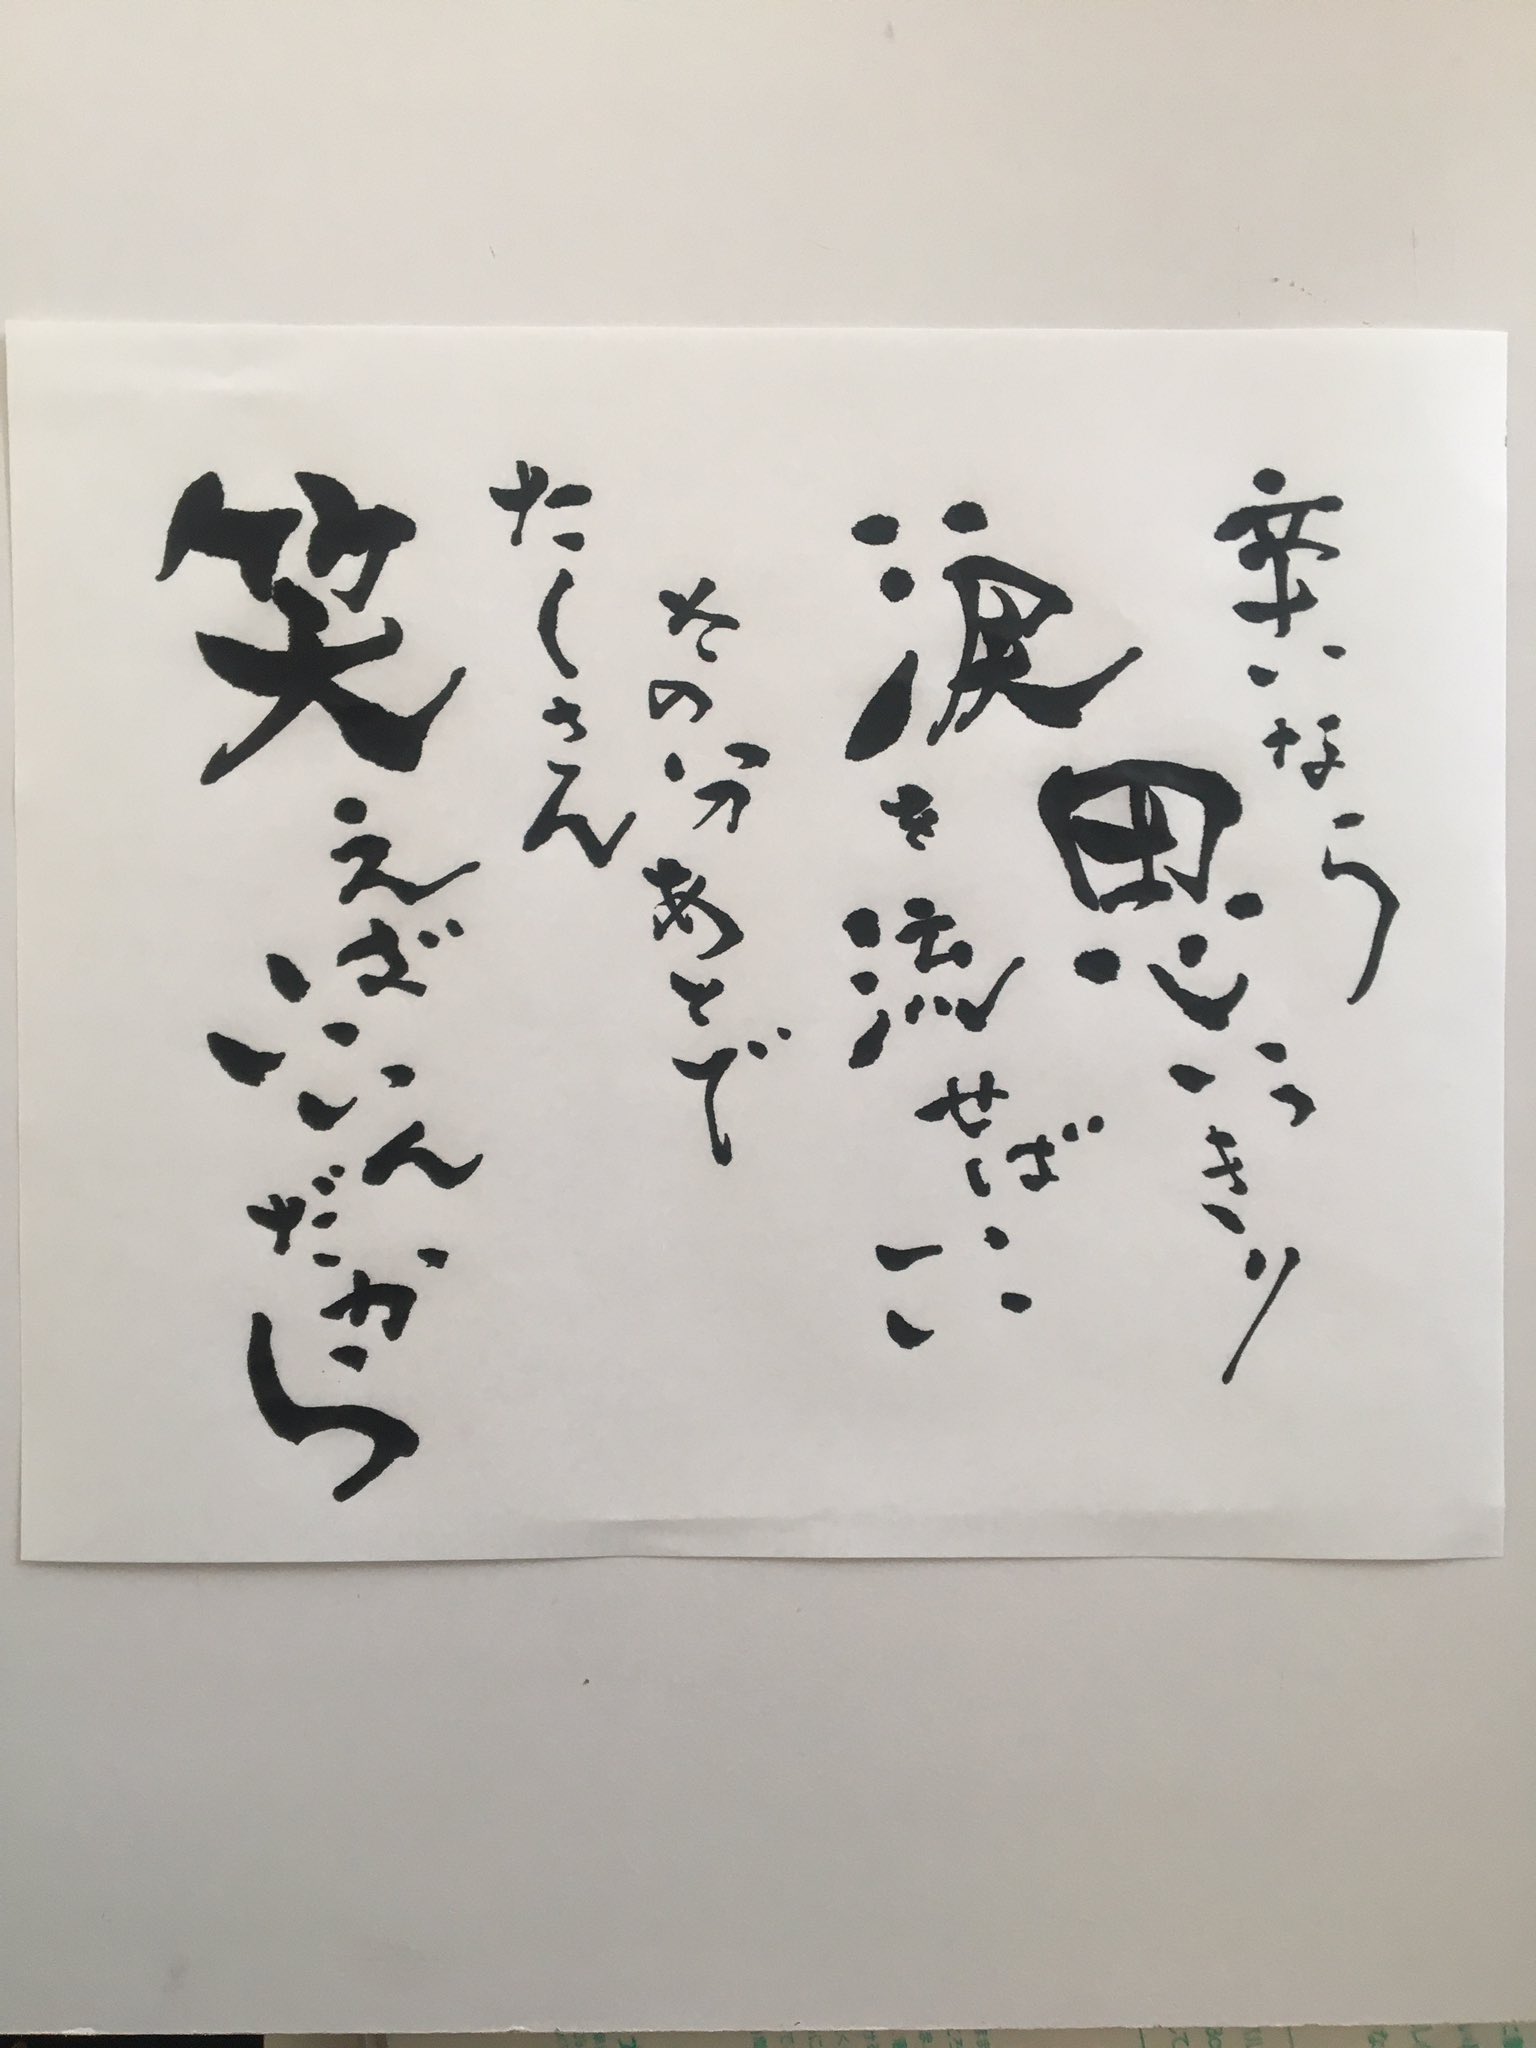 辛いなら
思いっきり
涙を流せばいい
その分あとで
たしさん
笑えばいいんだから